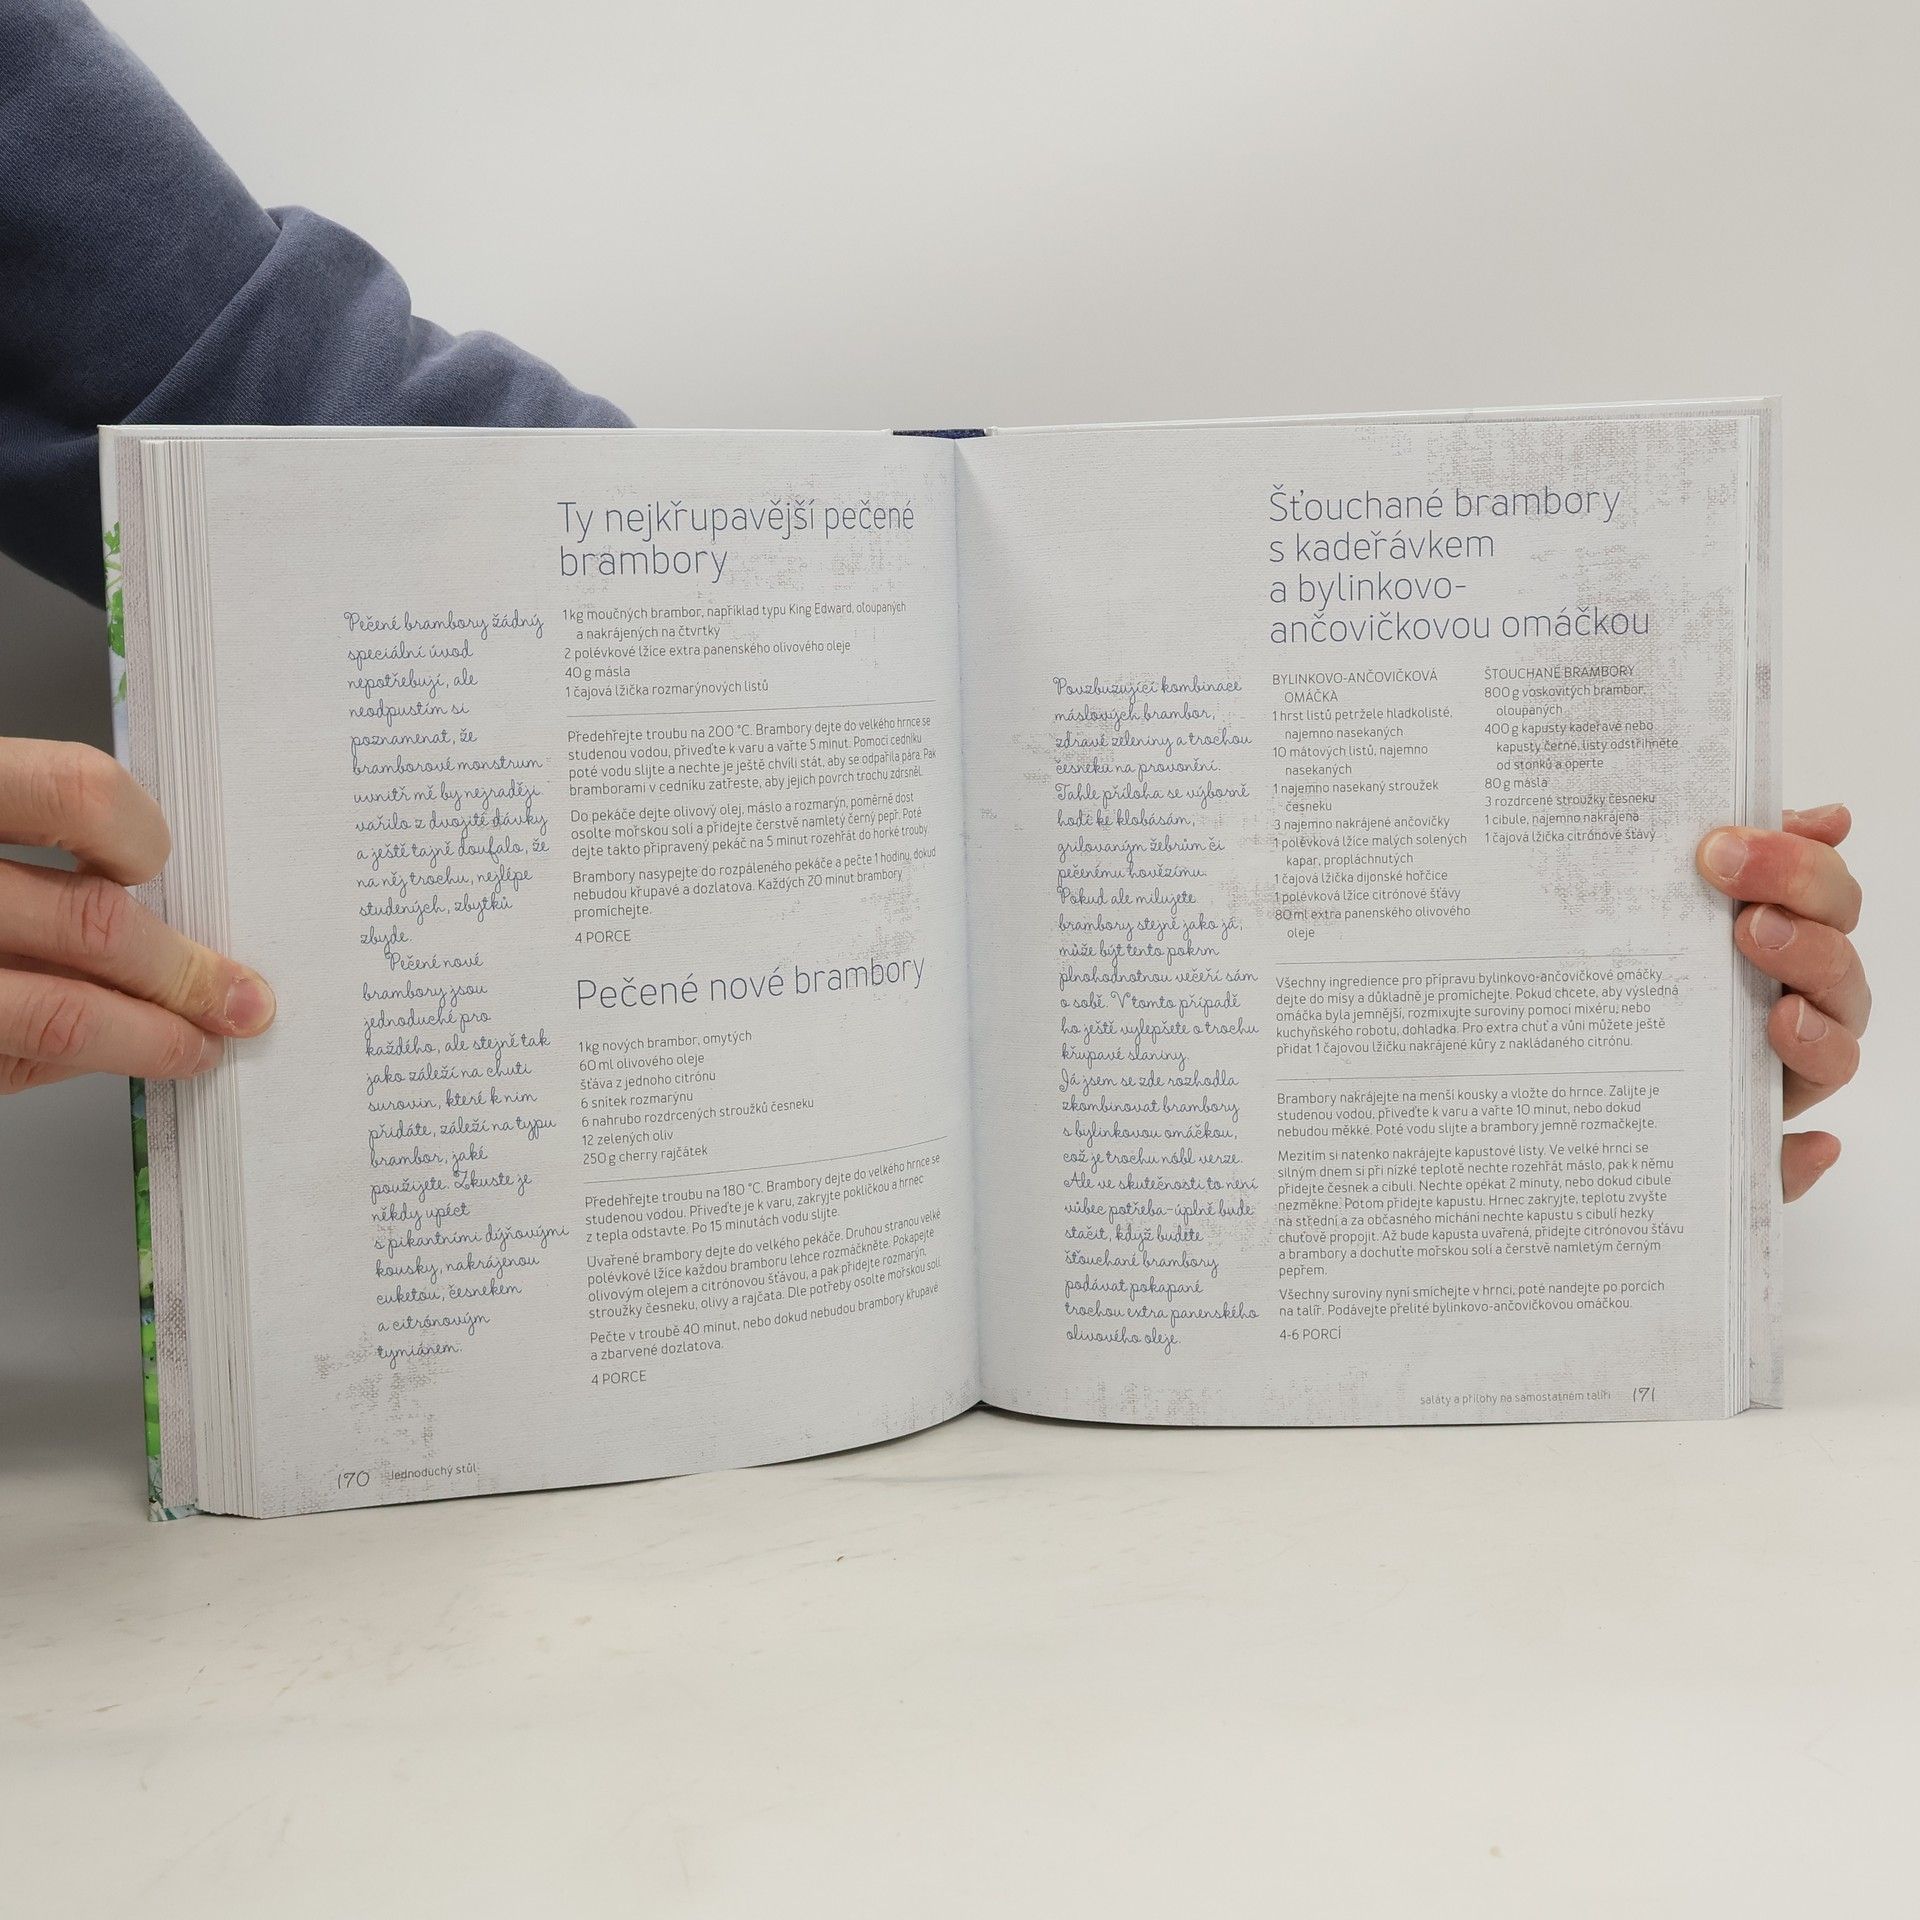 Ty nejkřupavější pečené
brambory
Pečené brambory žádný
speciální úvod
nepotřebují, ale
neodpustím si
poznamenat, že
bramborové monstrum
uvnitř mě by nejraději
vařilo z dvojité dávky
a ještě tajně doufalo, že
na něj trochu, nejlépe
studených, zbytků
zbyde.
Pečené nové
brambory jsou
jednoduché pro
každého, ale stejně tak
jako záleží na chuti
surovin, které k nim
přidáte, záleží na typu
brambor, jaké
použijete. Zkuste je
někdy upéct
s pikantními dýňovými
kousky, nakrájenou
cuketou, česnekem
a citrónovým
tymiánem.
1 kg moučných brambor, například typu King Edward, oloupaných
a nakrájených na čtvrtky
2 polévkové lžíce extra panenského olivového oleje
40 g másla
1 čajová lžička rozmarýnových listů
Předehřejte troubu na 200 °C. Brambory dejte do velkého hrnce se
studenou vodou, přiveďte k varu a vařte 5 minut. Pomocí cedníku
poté vodu slijte a nechte je ještě chvíli stát, aby se odpařila pára. Pak
bramborami v cedníku zatřeste, aby jejich povrch trochu zdrsněl.
Do pekáče dejte olivový olej, máslo a rozmarýn, poměrně dost
osolte mořskou solí a přidejte čerstvě namletý černý pepř. Poté
dejte takto připravený pekáč na 5 minut rozehřát do horké trouby.
Brambory nasypejte do rozpáleného pekáče a pečte 1 hodinu, dokud
nebudou křupavé a dozlatova. Každých 20 minut brambory
promíchejte.
4 PORCE
Pečené nové brambory
1 kg nových brambor, omytých
60 ml olivového oleje
šťáva z jednoho citrónu
6 snítek rozmarýnu
6 nahrubo rozdrcených stroužků česneku
12 zelených oliv
250 g cherry rajčátek
Předehřejte troubu na 180 °C. Brambory dejte do velkého hrnce se
studenou vodou. Přiveďte je k varu, zakryjte pokličkou a hrnec
z tepla odstavte. Po 15 minutách vodu slijte.
Uvařené brambory dejte do velkého pekáče. Druhou stranou velké
polévkové lžíce každou bramboru lehce rozmáčkněte. Pokapejte
olivovým olejem a citrónovou šťávou, a pak přidejte rozmarýn,
stroužky česneku, olivy a rajčata. Dle potřeby osolte mořskou solí.
Pečte v troubě 40 minut, nebo dokud nebudou brambory křupavé
a zbarvené dozlatova.
4 PORCE
170 Jednoduchý stůl
Šťouchané brambory
s kadeřávkem
a bylinkovo-
ančovičkovou omáčkou
Povzbuzující kombinace
máslových brambor,
zdravé zeleniny a trochou
česneku na provonění.
Tahle příloha se výborně
hodí ke klobásám,
grilovaným žebrům či
pečenému hovězímu.
Pokud ale milujete
brambory stejně jako já,
může být tento pokrm
plnohodnotnou večeří sám
o sobě. V tomto případě
ho ještě vylepšete o trochu
křupavé slaniny.
Já jsem se zde rozhodla
zkombinovat brambory
s bylinkovou omáčkou,
což je trochu nóbl verze.
Ale ve skutečnosti to není
vůbec potřeba - úplně bude
stačit, když budete
šťouchané brambory
podávat pokapané
trochou extra panenského
olivového oleje.
BYLINKOVO-ANČOVIČKOVÁ
OMÁČKA
1 hrst listů petržele hladkolisté,
najemno nasekaných
10 mátových listů, najemno
nasekaných
1 najemno nasekaný stroužek
česneku
3 najemno nakrájené ančovičky
1 polévková lžíce malých solených
kapar, propláchnutých
1 čajová lžička dijonské hořčice
1 polévková lžíce citrónové šťávy
80 ml extra panenského olivového
oleje
ŠŤOUCHANÉ BRAMBORY
800 g voskovitých brambor,
oloupaných
400 g kapusty kadeřavé nebo
kapusty černé, listy odstřihněte
od stonků a operte
80 g másla
3 rozdrcené stroužky česneku
1 cibule, najemno nakrájená
1 čajová lžička citrónové šťávy
Všechny ingredience pro přípravu bylinkovo-ančovičkové omáčky
dejte do mísy a důkladně je promíchejte. Pokud chcete, aby výsledná
omáčka byla jemnější, rozmixujte suroviny pomocí mixéru, nebo
kuchyňského robotu, dohladka. Pro extra chuť a vůni můžete ještě
přidat 1 čajovou lžičku nakrájené kůry z nakládaného citrónu.
Brambory nakrájejte na menší kousky a vložte do hrnce. Zalijte je
studenou vodou, přiveďte k varu a vařte 10 minut, nebo dokud
nebudou měkké. Poté vodu slijte a brambory jemně rozmačkejte.
Mezitím si natenko nakrájejte kapustové listy. Ve velké hrnci se
silným dnem si při nízké teplotě nechte rozehřát máslo, pak k němu
přidejte česnek a cibuli. Nechte opékat 2 minuty, nebo dokud cibule
nezměkne. Potom přidejte kapustu. Hrnec zakryjte, teplotu zvyšte
na střední a za občasného míchání nechte kapustu s cibulí hezky
chuťově propojit. Až bude kapusta uvařená, přidejte citrónovou šťávu
a brambory a dochuťte mořskou solí a čerstvě namletým černým
pepřem.
Všechny suroviny nyní smíchejte v hrnci, poté nandejte po porcích
na talíř. Podávejte přelité bylinkovo-ančovičkovou omáčkou.
4-6 PORCÍ
saláty a přílohy na samostatném talíři 171